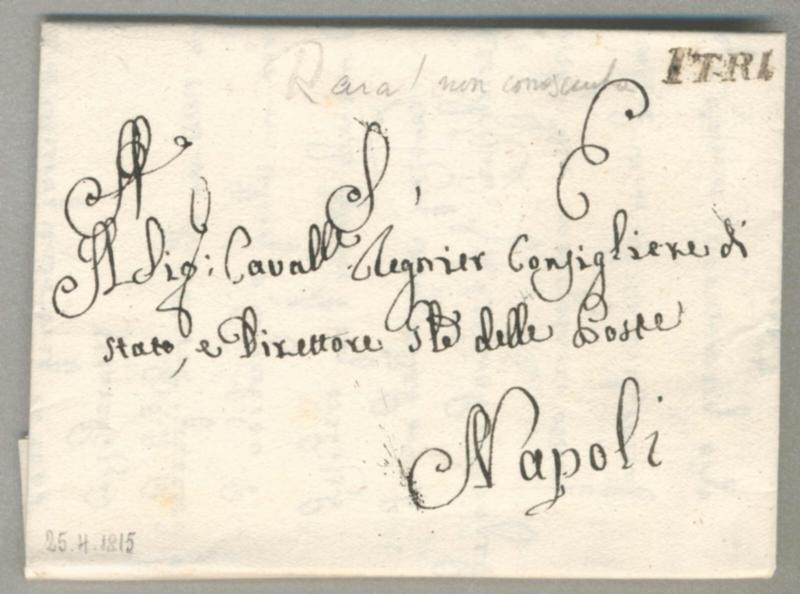 Rara! non conosciuta
ITRI
A S, E
Al Sig: Cavall:e Regnier Consigliere di
stato, e Direttore Gle delle Poste
Napoli
25.4.1815